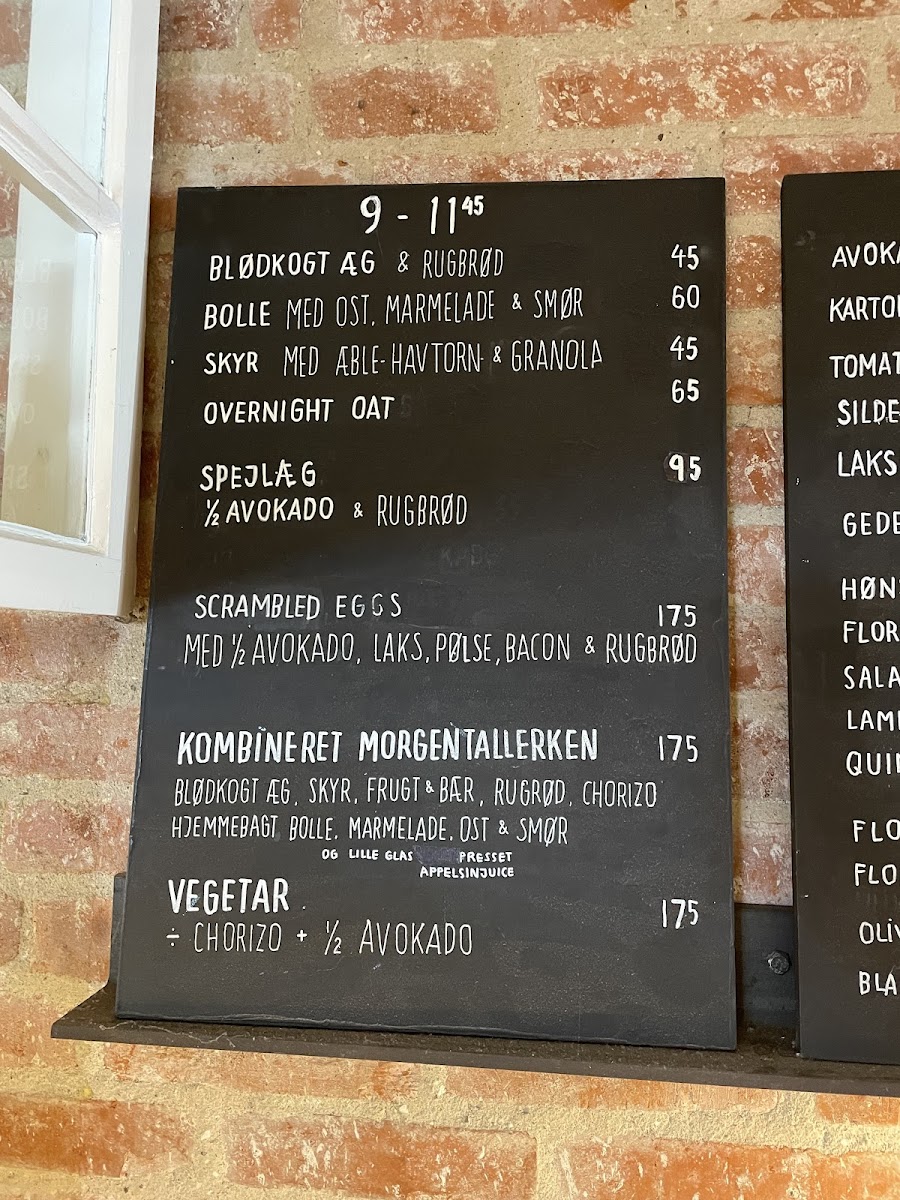 9 - 11 45
BLØDKOGT ÆG & RUGBRØD 45
BOLLE MED OST, MARMELADE & SMØR 60
SKYR MED ÆBLE-HAVTORN- & GRANOLA 45
OVERNIGHT OAT 65
SPEJLÆG 95
½ AVOKADO & RUGBRØD
SCRAMBLED EGGS 175
MED ½ AVOKADO, LAKS, PØLSE, BACON & RUGBRØD
KOMBINERET MORGENTALLERKEN 175
BLØDKOGT ÆG, SKYR, FRUGT & BÆR, RUGRØD, CHORIZO
HJEMMEBAGT BOLLE, MARMELADE, OST & SMØR
OG LILLE GLAS PRESSET
APPELSINJUICE
VEGETAR 175
÷ CHORIZO + ½ AVOKADO
AVOKA
KARTO
TOMAT
SILDE
LAKS
GEDE
HØN
FLOR
SALA
LAM
QUI
FLO
FLO
OLIV
BLA